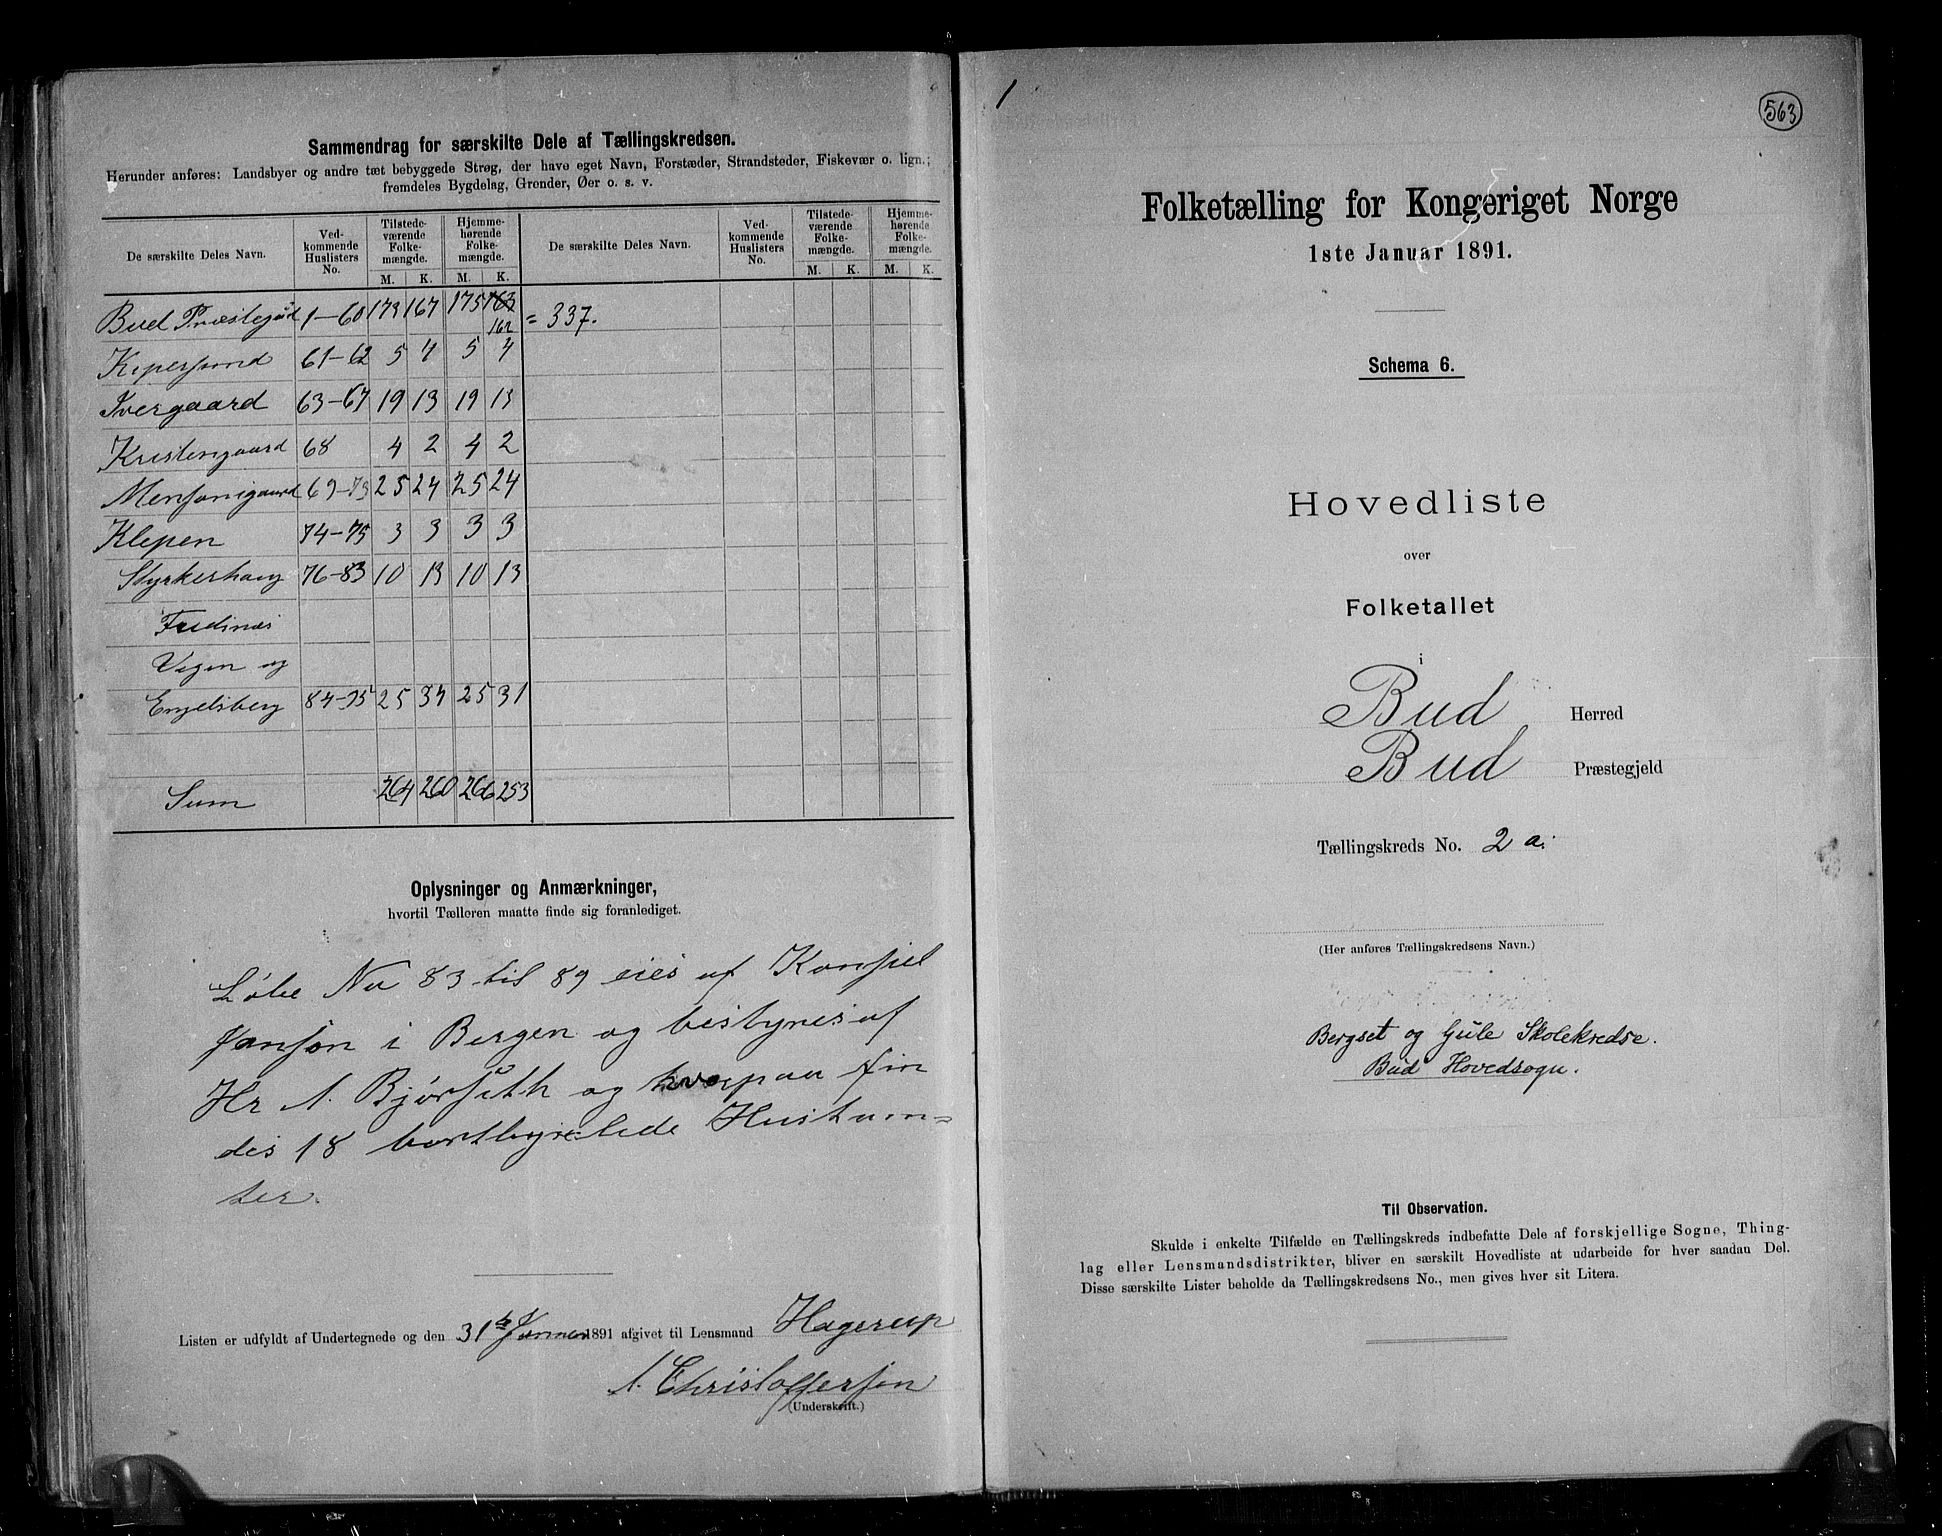 Sammendrag for særskilte Dele af Tællingskredsen.
Herunder anføres: Landsbyer og andre tæt bebyggede Strøg, der have eget Navn, Forstæder, Strandsteder, Fiskevær o. lign.;
fremdeles Bygdelag, Grender, Øer o. s. v.
De særskilte Deles Navn. Ved-kommende Huslisters No. Tilstede-værende Folke-mængde. M. K. Hjemme-hørende Folke-mængde. M. K. De særskilte Deles Navn. Ved-kommende Huslisters No. Tilstede-værende Folke-mængde. M. K. Hjemme-hørende Folke-mængde. M. K.
Bud Præstegård 1-60 173 167 175 163 162 = 337.
Kipersund 61-62 5 4 5 4
Ivergaard 63-67 19 13 19 13
Kristengaard 68 4 2 4 2
Monsonigaard 69-73 25 24 25 24
Klepen 74-75 3 3 3 3
Styrkershaug 76-83 10 13 10 13
Vegen og
Engelsberg 84-95 25 34 25 31
Sum 264 260 266 253
Oplysninger og Anmærkninger,
hvortil Tælleren maatte finde sig foranlediget.
Løbe No 83 til 89 eies af
Janson i Bergen og bestyres af
Hr A. Bjørseth og hvorpaa fin
des 18 bortbyxlede Hustom=
ter.
Listen er udfyldt af Undertegnede og den 31te Januar 1891 afgivet til Lensmand Hagerup
A. Christoffersen
(Underskrift.)
1
563
Folketælling for Kongeriget Norge
1ste Januar 1891.
Schema 6.
Hovedliste
over
Folketallet
i
Bud Herred
Bud Præstegjeld
Tællingskreds No. 2 a.
(Her anføres Tællingskredsens Navn.)
Bergset og Gule Skolekredse.
Bud Hovedsogn.
Til Observation.
Skulde i enkelte Tilfælde en Tællingskreds indbefatte Dele af forskjellige Sogne, Thing-
lag eller Lensmandsdistrikter, bliver en særskilt Hovedliste at udarbeide for hver saadan Del.
Disse særskilte Lister beholde da Tællingskredsens No., men gives hver sit Litera.